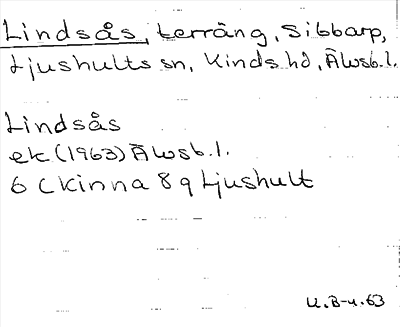 Lindsås, terräng, Sibbarp,
Ljushults sn, Kinds hd, Älvsb.l.
Lindsås
ek (1963) Älvsb.l.
6 C Kinna 8 q Ljushult
U.B-u.63